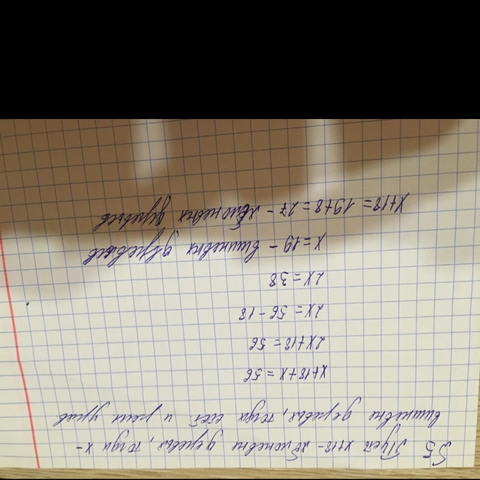 §5 Пусть x+18 - яблоневых деревьев, тогда x -
вишневых деревьев, тогда и реши
x+18+x = 56
2x+18 = 56
2x = 56 - 18
2x = 38
x = 19 - вишневых деревьев
x+18 = 19+8 = 27 - яблоневых деревьев